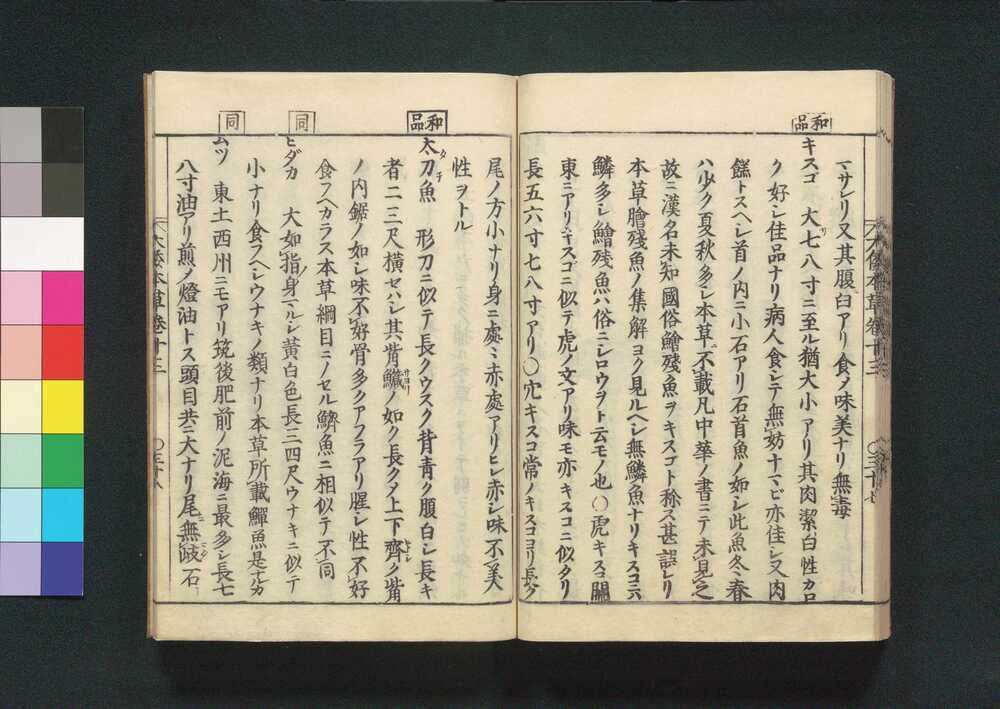 マサレリ又其腹白アリ食ノ味美ナリ無毒
和品
キスゴ 大七八寸ニ至ル猶大小アリ其肉潔白性カロ
ク好シ佳品ナリ病人食シテ無妨ナマビ亦佳シ又肉
餻トスヘシ首ノ内ニ小石アリ石首魚ノ如シ此魚冬春
ハ少ク夏秋多シ本草ニ不載凡中華ノ書ニテ未見之
故ニ漢名未知國俗鱠残魚ヲキスゴト称ス甚誤レリ
本草膾残魚ノ集解ヨク見ルヘシ無鱗魚ナリキスコニハ
鱗多シ鱠残魚ハ俗ニシロウヲト云モノ也〇虎キスコ關
東ニアリキスゴニ似テ虎ノ文アリ味モ亦キスコニ似タリ
長五六寸七八寸アリ〇穴キスコ常ノキスコヨリ長ク
大倭本草巻十三
〇三十七
尾ノ方小ナリ身ニ處ミ赤處アリヒレ赤シ味不美
性ヲトル
和品
太刀魚 形刀ニ似テ長クウスク背青ク腹白シ長キ
者二三尺横セバシ其觜鱵ノ如ク長クタ上下齊ク觜
ノ内鋸ノ如シ味不好骨多クアフラアリ腥シ性不好
食フヘカラス本草綱目ニノセル鱭魚ニ相似テ不同
同
ヒダカ 大如指身マルシ黄白色長三四尺ウナキニ似テ
小ナリ食フヘシウナキノ類ナリ本草所載鱓魚是ナルカ
同
ムツ 東土西州ニモアリ筑後肥前ノ泥海ニ最多シ長七
八寸油アリ煎ノ燈油トス頭目共ニ大ナリ尾無岐石
大倭本草巻十三
〇三十八